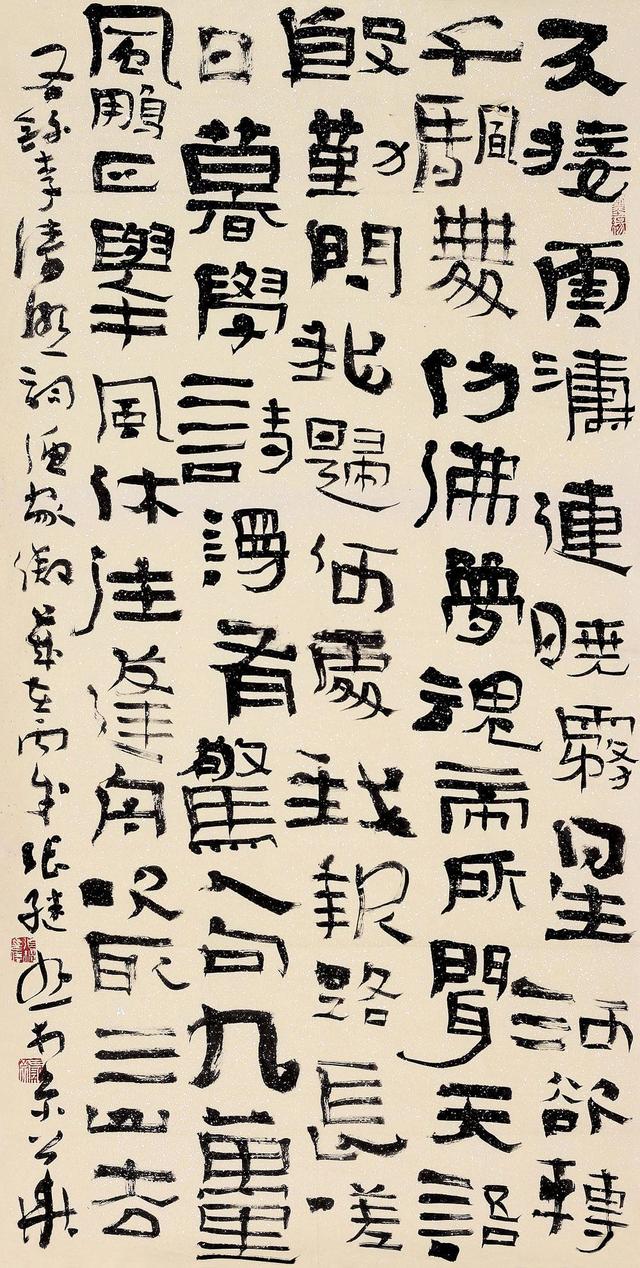 天接雲濤連曉霧星河欲轉
千颿舞仿佛夢魂帝所聞天語
殷勤問我歸何處我報路長嗟
日暮學詩謾有驚人句九萬里
風鵬正舉風休住蓬舟吹取三山去
右錄李清照詞漁家傲歲在丙戌張繼於京